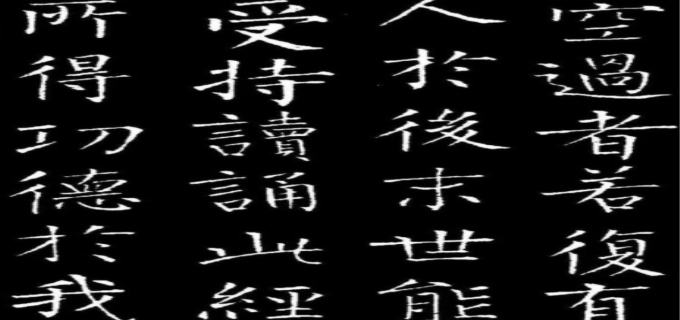 空過者若復有
人於後末世能
受持讀誦此經
所得功德於我